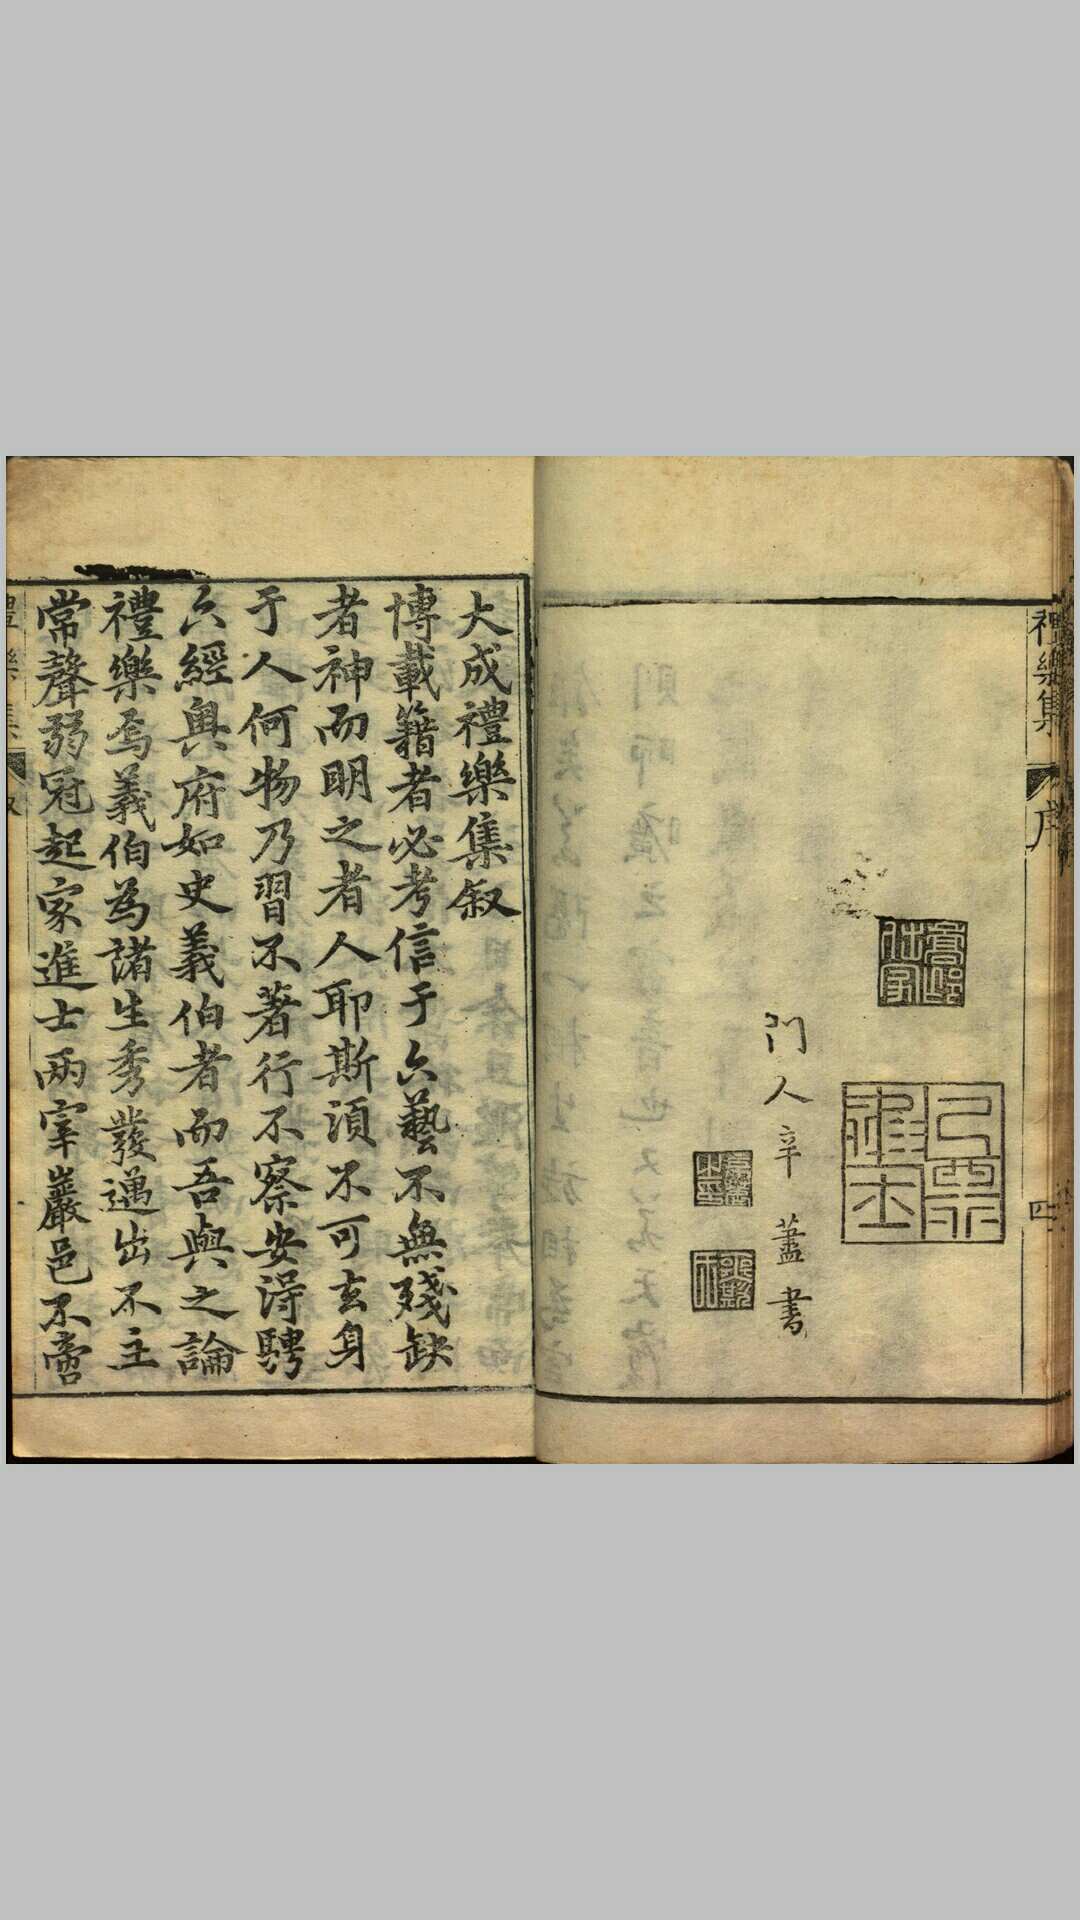 禮樂集
序
四
門人辛藎書
大成禮樂集叙
博載籍者必考信于六藝不無殘缺
者神而明之者人耶斯湏不可玄身
于人何物乃習不著行不察安得騁
六經輿府如史義伯者而吾與之論
禮樂焉義伯為諸生秀發邁出不主
常聲弱冠起家進士兩宰巖邑不啻